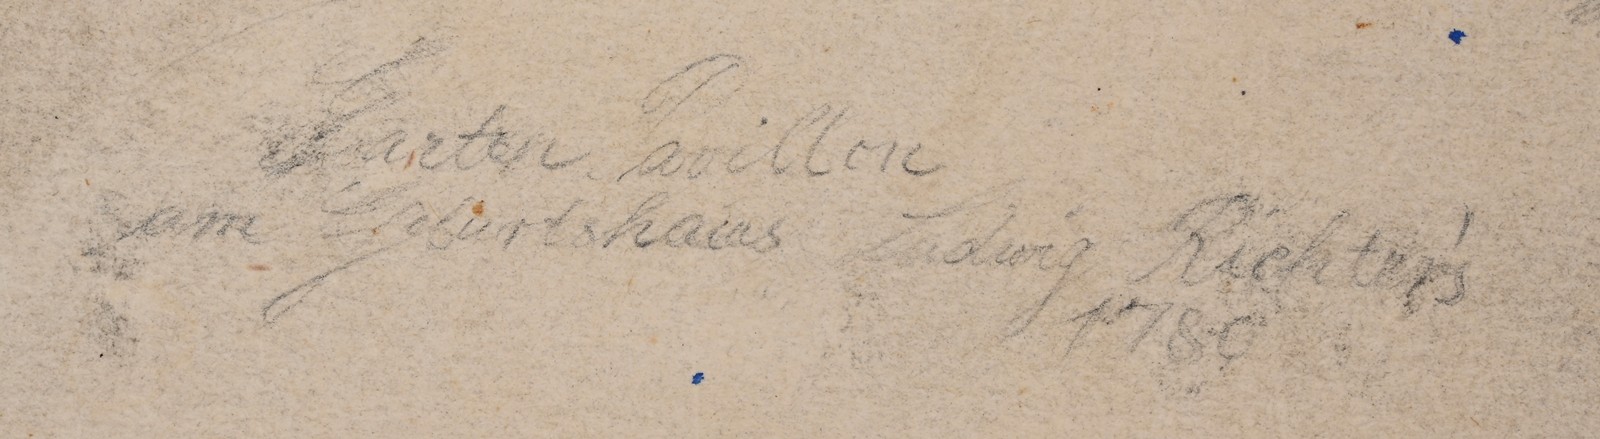 Garten Pavillon
am Geburtshaus Ludwig Richter's